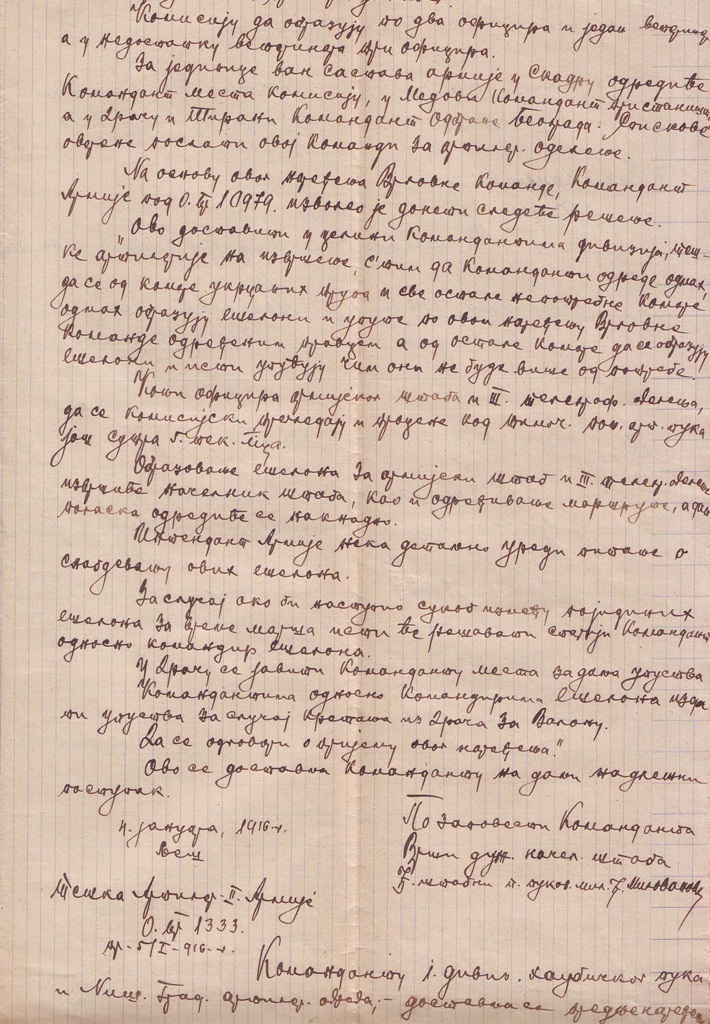 Комисију да образују по два официра и један ветеринар
а у недостатку ветеринара три официра.
За јединице ван састава армије у Скадру одредиће
Командант места комисију, у Медови Командант пристаништа,
а у Драчу и Тирани Командант Одбране београда. Спискове
овереne послати овој Команди за артиљер. одељење.
На основу овог наређења Врховне Команде, Командант
Армије под О. Бр 10979. изволео је донети следеће решење.
"Ово доставити у целини Командантима дивизија, теш-
ке артиљерије на извршење, с тим да Команданти одреде одмах,
да се од комре укрцаних трупа и све остале непотребне Комре
одмах образују ешелони и упуте по овом наређењу Врховне
Команде одређеним правцем а од остале Комре да се образују
ешелони и исти упућују чим они не буде више од потребе.
Коњи официра армијског штаба и III. телеграф. одељења,
да се комисијски прегледају и процене код пољ. арт. пука
још сутра 5. тек. м-ца.
Образовање ешелона за армијски штаб и III. телегр. одељење
извршиће начелник штаба, као и одређивање маршруте, а дан
поласка одредиће се накнадно.
Интендант Армије нека детаљно уреди питање о
снабдевању ових ешелона.
За случај ако би наступио сукоб између појединих
ешелона за време марша исти ће решавати старији Командант
односно командир ешелона.
У Драчу се јавити Команданту места за даља упуства
Командантима односно Командирима ешелона изда
ти упуства за случај кретања из Драча за Валону.
Да се одговори о пријему овог наређења."
Ово се доставља Команданту на даљи надлежни
поступак.
4. јануара, 1916. г.
Љеш
По заповести Команданта
Врши дуж. начел. штаба
штабни п. пуков. Мил. Ж. Миловановић
Тешка Артиљер. II. Армије
О. Бр 1333.
пр. 5/I-916. г.
Команданту I. дивиз. хаубичког пука
и Ниш. Град. артиљер. одреда, - доставља се предње наређење